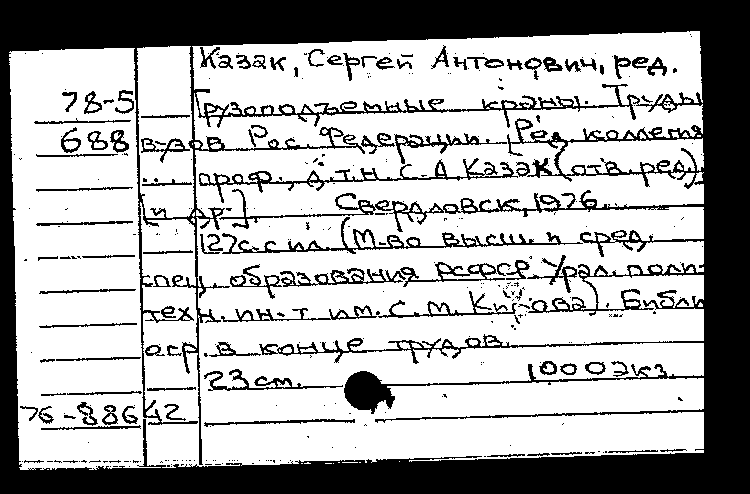 Казак, Сергей Антонович, ред.
78-5 Грузоподъемные краны. Труды
688 вузов Рос. Федерации. [Ред. коллегия
... проф., д.т.н. С.А. Казак (отв. ред),
[и др.]. Свердловск, 1976.
127с. с ил. (М-во высш. и сред.
спец. образования РСФСР. Урал. поли-
техн. ин-т им. С.М. Кирова). Библи
огр. в конце трудов.
23 см. 1000 экз.
76-88642